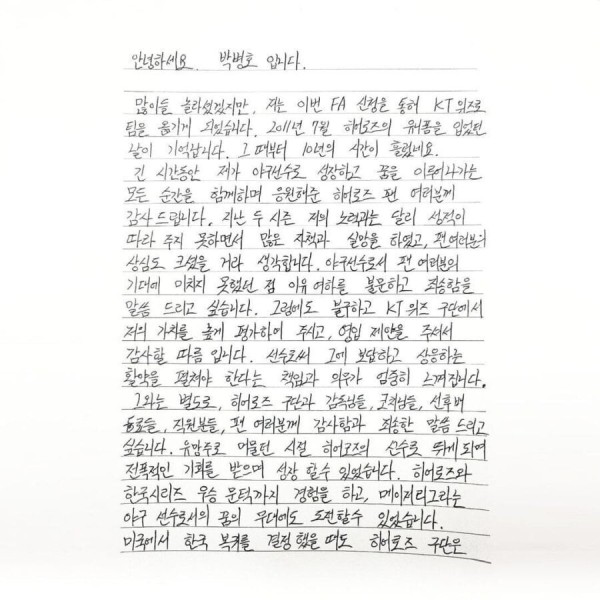 안녕하세요. 박병호 입니다.
많이들 놀라셨겠지만, 저는 이번 FA 신청을 통해 KT위즈로
팀을 옮기게 되었습니다. 2011년 7월 히어로즈의 유니폼을 입었던
날이 기억납니다. 그 때부터 10년의 시간이 흘렀네요.
긴 시간동안 제가 야구선수로 성장하고 꿈을 이루어나가는
모든 순간을 함께하며 응원해준 히어로즈 팬 여러분께
감사 드립니다. 지난 두 시즌 저의 노력과는 달리 성적이
따라 주지 못하면서 많은 자책과 실망을 하였고, 팬 여러분의
상심도 크셨을 거라 생각합니다. 야구선수로서 팬 여러분의
기대에 미치지 못했던 점 이유 여하를 불문하고 죄송함을
말씀 드리고 싶습니다. 그럼에도 불구하고 KT 위즈 구단에서
저의 가치를 높게 평가하여 주시고, 영입 제안을 주셔서
감사할 따름 입니다. 선수로써 그에 보답하고 상응하는
활약을 펼쳐야 한다는 책임과 의무가 엄중히 느껴집니다.
그와는 별도로, 히어로즈 구단과 감독님들, 코치님들, 선후배
동료들, 직원분들, 팬 여러분께 감사함과 죄송한 말씀 드리고
싶습니다. 유망주로 머물던 시절 히어로즈의 선수로 뛰게 되며
전폭적인 기회를 받으며 성장 할 수 있었습니다. 히어로즈와
한국시리즈 우승 문턱까지 경험을 하고, 메이저리그라는
야구 선수로서의 꿈의 무대에도 도전할 수 있었습니다.
미국에서 한국 복귀를 결정 했을 때도 히어로즈 구단은